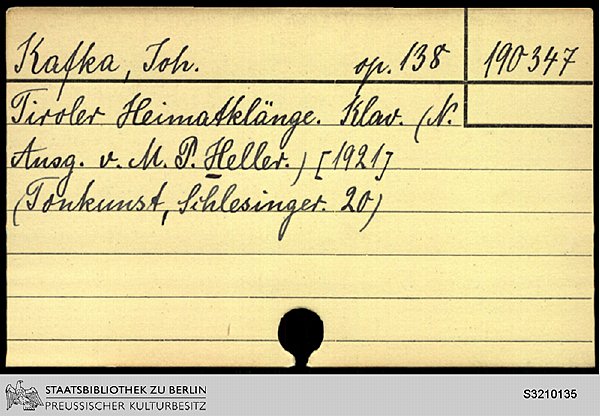 Kafka, Joh. op. 138 190347
Tiroler Heimatklänge. Klav. (N.
Ausg. v. M. P. Heller.) [1921]
(Tonkunst, Schlesinger. 20)
STAATSBIBLIOTHEK ZU BERLIN
PREUSSISCHER KULTURBESITZ
S3210135